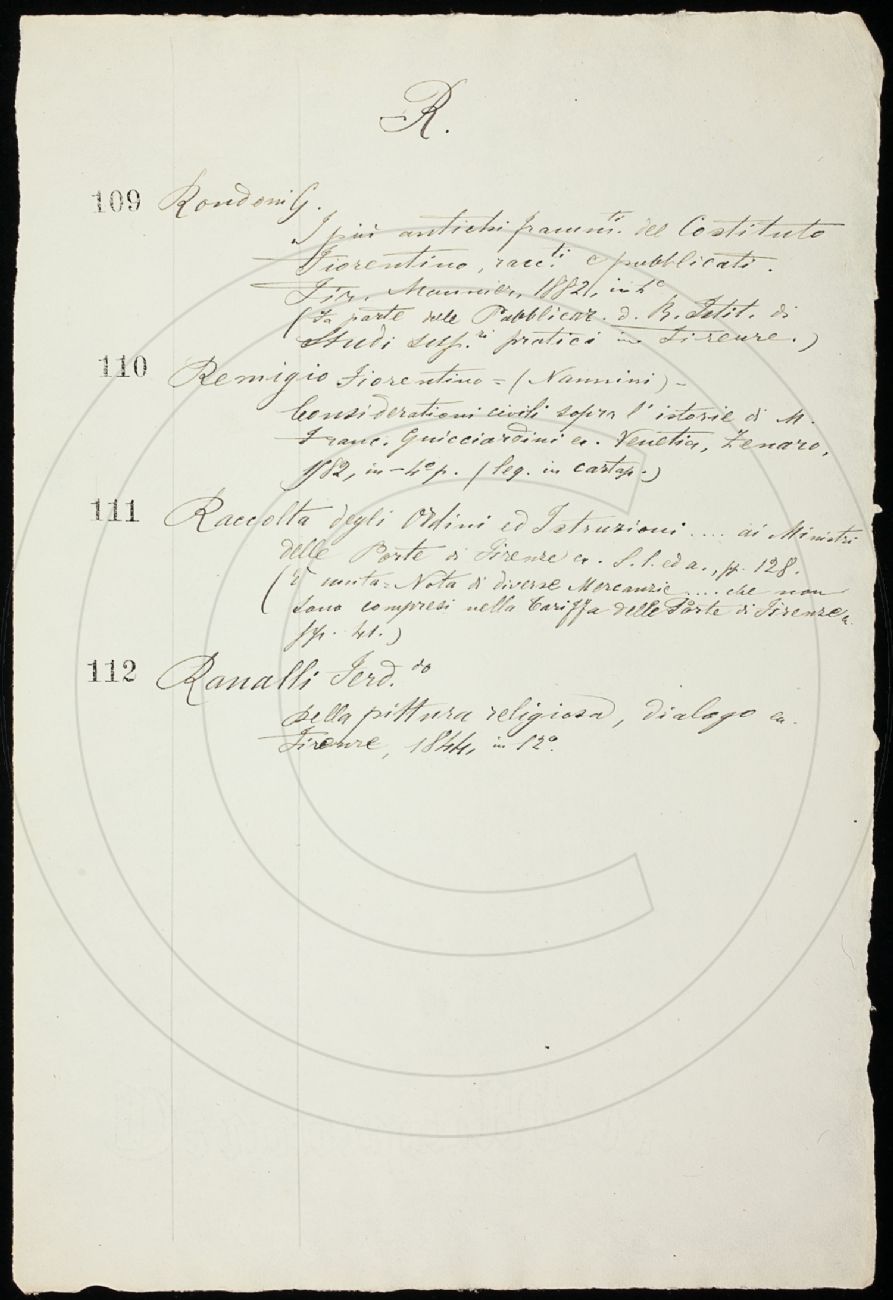 R.
109 Rondoni G.
I più antichi frammti. del Costituto
Fiorentino, raccti. e pubblicati.
Fir. Monnier, 1882, in 4°
(Fa parte delle Pubblicaz. d. R. Istit. di
Studi sup.ri pratici in Firenze.)
110 Remigio Fiorentino = (Nannini) -
Considerationi civili sopra l' istorie di M.
Franc. Guicciardini ec. Venetia, Zenaro,
1582, in-4° p. (leg. in cartap.)
111 Raccolta degli Ordini ed Istruzioni .... ai Ministri
delle Porte di Firenze ec. S. l. ed a., pp. 128.
(È unita = Nota di diverse Mercanzie .... che non
sono compresi nella Tariffa delle Porte di Firenze
pp. 41.)
112 Ranalli Ferd.do
Della pittura religiosa, dialogo ec.
Firenze, 1844, in 12°.